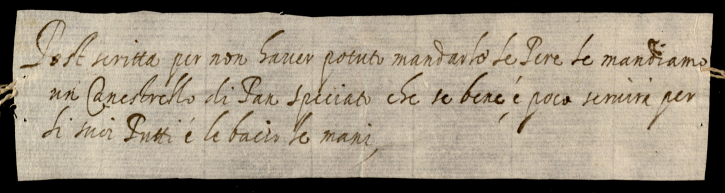 Post scritta per non haver potuto mandarlo le Pere le mandiamo
un Canestrello di Pan speciato che se bene é poco servirà per
li suoi Putti é le bacio le mani,